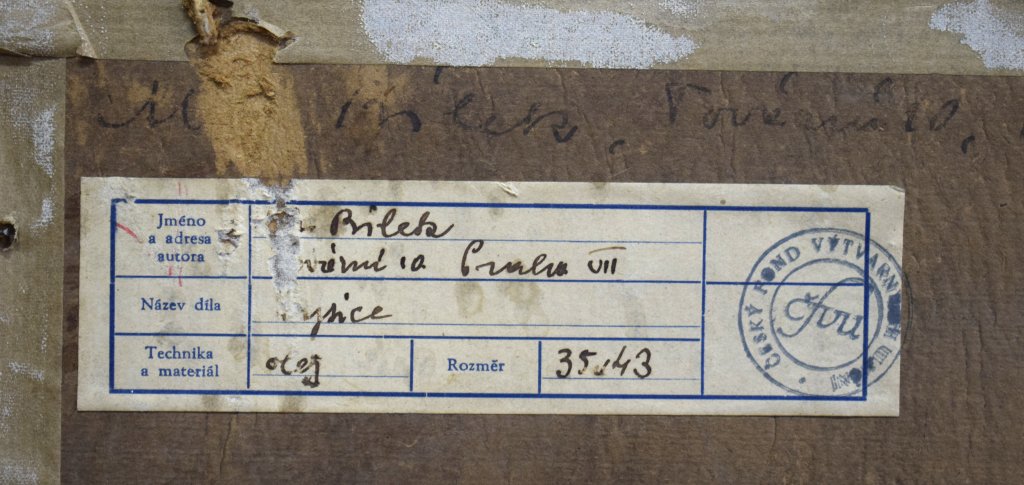 Bílek, Tovární 10,
Jméno
a adresa
autora
Bílek
ovární 10 Praha VII
Název díla
ysice
Technika
a materiál
olej
Rozměr
35x43
ČESKÝ FOND VÝTVARN
čfvu